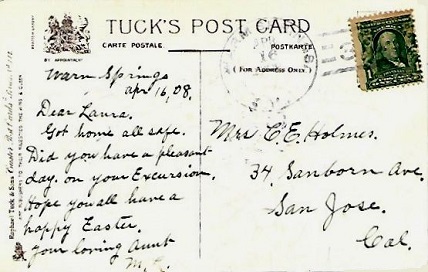 TUCK'S POST CARD
CARTE POSTALE.
POSTKARTE.
BY APPOINTMENT
(FOR ADDRESS ONLY)
Warm Springs
Apr 16, 08.
Dear Laura.
Got home all safe.
Did you have a pleasant
day on your Excursion.
Hope you all have a
happy Easter.
Your loving Aunt
Mrs C. E. Holmes.
34. Sanborn Ave.
San Jose.
Cal.
Raphael Tuck & Sons
ART PUBLISHERS TO THEIR MAJESTIES THE KING & QUEEN